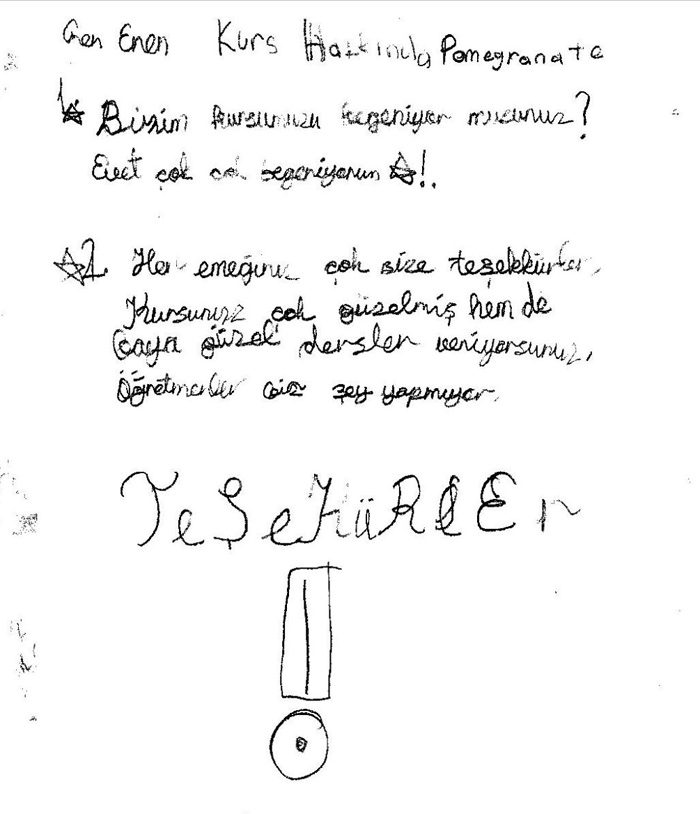 Kurs Hakkında Pomegranate
1. Bizim kursunuzu begeniyor musunuz?
Evet çok çok begeniyorum !.
2. Her emeğiniz çok size teşekkürler,
Kursunuz çok güzelmiş hem de
çaya güzel dersler veriyorsunuz,
Öğretmenler bir şey yapmıyor.
TeŞeKüRlEr
!